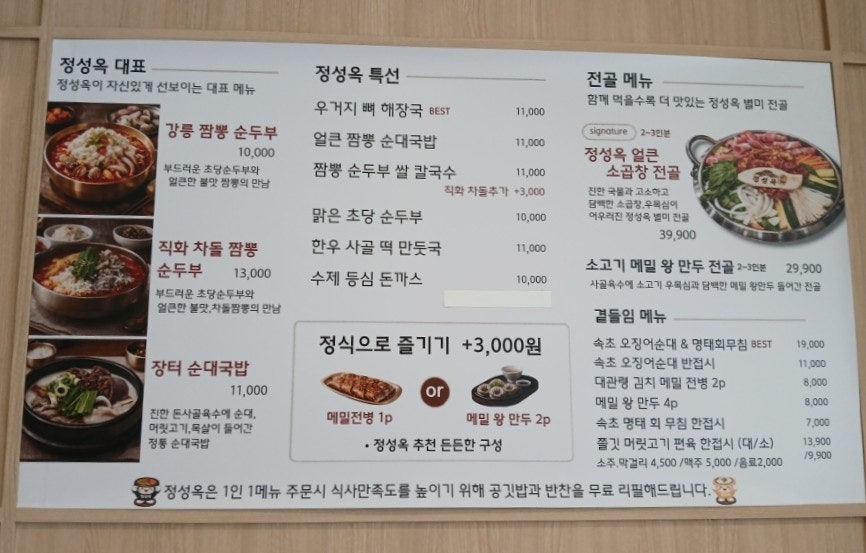 정성옥 대표
정성옥이 자신있게 선보이는 대표 메뉴
강릉 짬뽕 순두부
10,000
부드러운 초당순두부와
얼큰한 불맛 짬뽕의 만남
직화 차돌 짬뽕
순두부 13,000
부드러운 초당순두부와
얼큰한 불맛,차돌짬뽕의 만남
장터 순대국밥
11,000
진한 돈사골육수에 순대,
머릿고기,목살이 들어간
정통 순대국밥
정성옥 특선
우거지 뼈 해장국 BEST 11,000
얼큰 짬뽕 순대국밥 11,000
짬뽕 순두부 쌀 칼국수 11,000
직화 차돌추가 +3,000
맑은 초당 순두부 10,000
한우 사골 떡 만둣국 11,000
수제 등심 돈까스 10,000
정식으로 즐기기 +3,000원
or
메밀전병 1p 메밀 왕 만두 2p
• 정성옥 추천 든든한 구성
전골 메뉴
함께 먹을수록 더 맛있는 정성옥 별미 전골
signature 2~3인분
정성옥 얼큰
소곱창 전골
진한 국물과 고소하고
담백한 소곱창,우목심이
어우러진 정성옥 별미 전골
39,900
정성옥
소고기 메밀 왕 만두 전골 2~3인분 29,900
사골육수에 소고기 우목심과 담백한 메밀 왕만두 들어간 전골
곁들임 메뉴
속초 오징어순대 & 명태회무침 BEST 19,000
속초 오징어순대 반접시 11,000
대관령 김치 메밀 전병 2p 8,000
메밀 왕 만두 4p 8,000
속초 명태 회 무침 한접시 7,000
쫄깃 머릿고기 편육 한접시 (대/소) 13,900
/9,900
소주.막걸리 4,500 /맥주 5,000 /음료2,000
정성옥은 1인 1메뉴 주문시 식사만족도를 높이기 위해 공깃밥과 반찬을 무료 리필해드립니다.